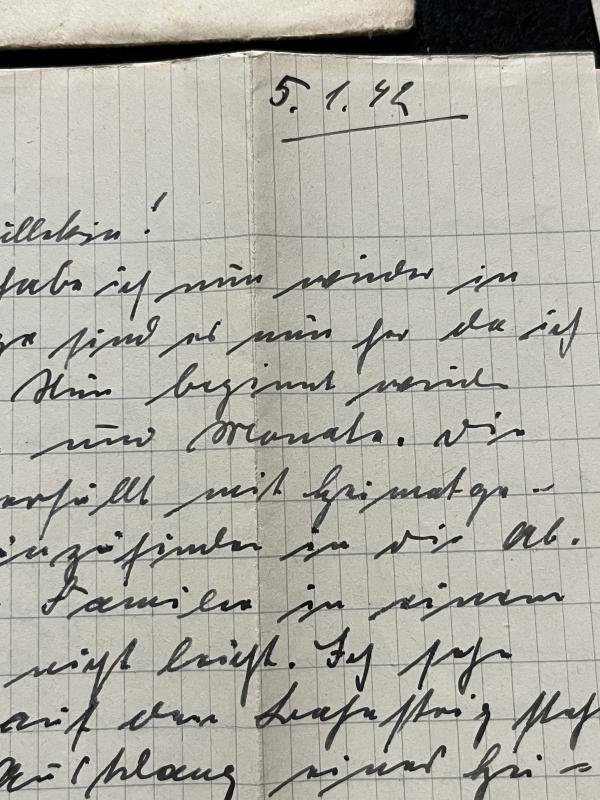 5. 1. 42
habe ich nun wieder in
sind es nun her da ich
Nun beginnt wieder
und Monate. Die
erfüllt mit Heimatge-
einzufinden in die Ab.
Familie in einem
nicht leicht. Ich sehe
auf dem Bahnsteig steh
einer Hei-